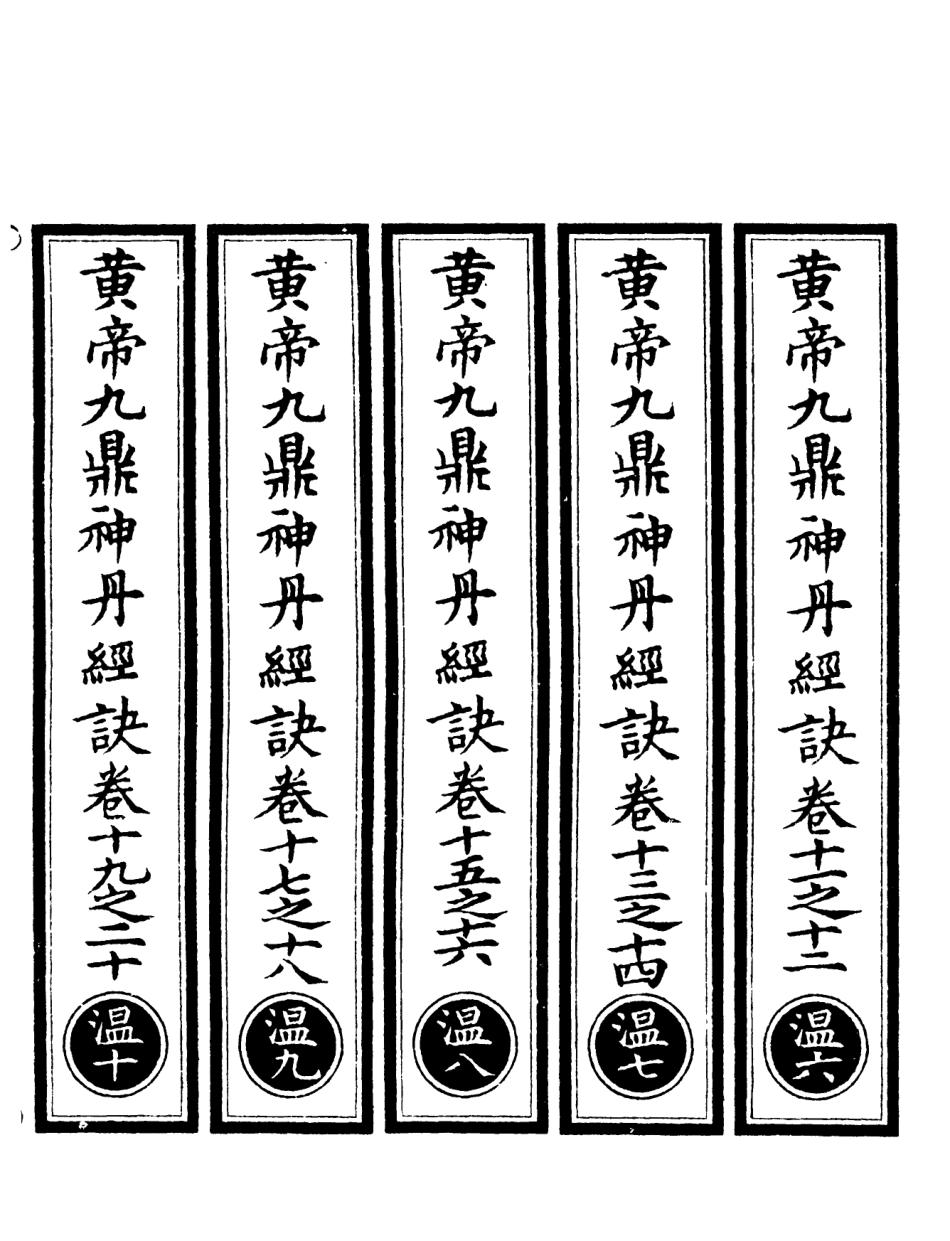 黄帝九鼎神丹經訣卷十一之十二
温六
黄帝九鼎神丹經訣卷十三之十四
温七
黄帝九鼎神丹經訣卷十五之十六
温八
黄帝九鼎神丹經訣卷十七之十八
温九
黄帝九鼎神丹經訣卷十九之二十
温十